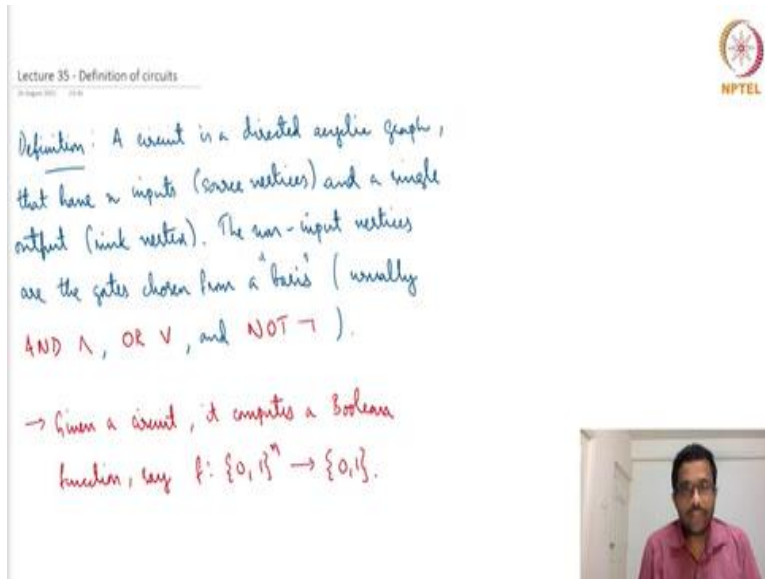 Lecture 35 - Definition of circuits
NPTEL
Definition: A circuit is a directed acyclic graph,
that have n inputs (source vertices) and a single
output (sink vertex). The non-input vertices
are the gates chosen from a "basis" (usually
AND ∧, OR ∨, and NOT ¬).
→ Given a circuit, it computes a Boolean
function, say f: {0,1}ⁿ → {0,1}.